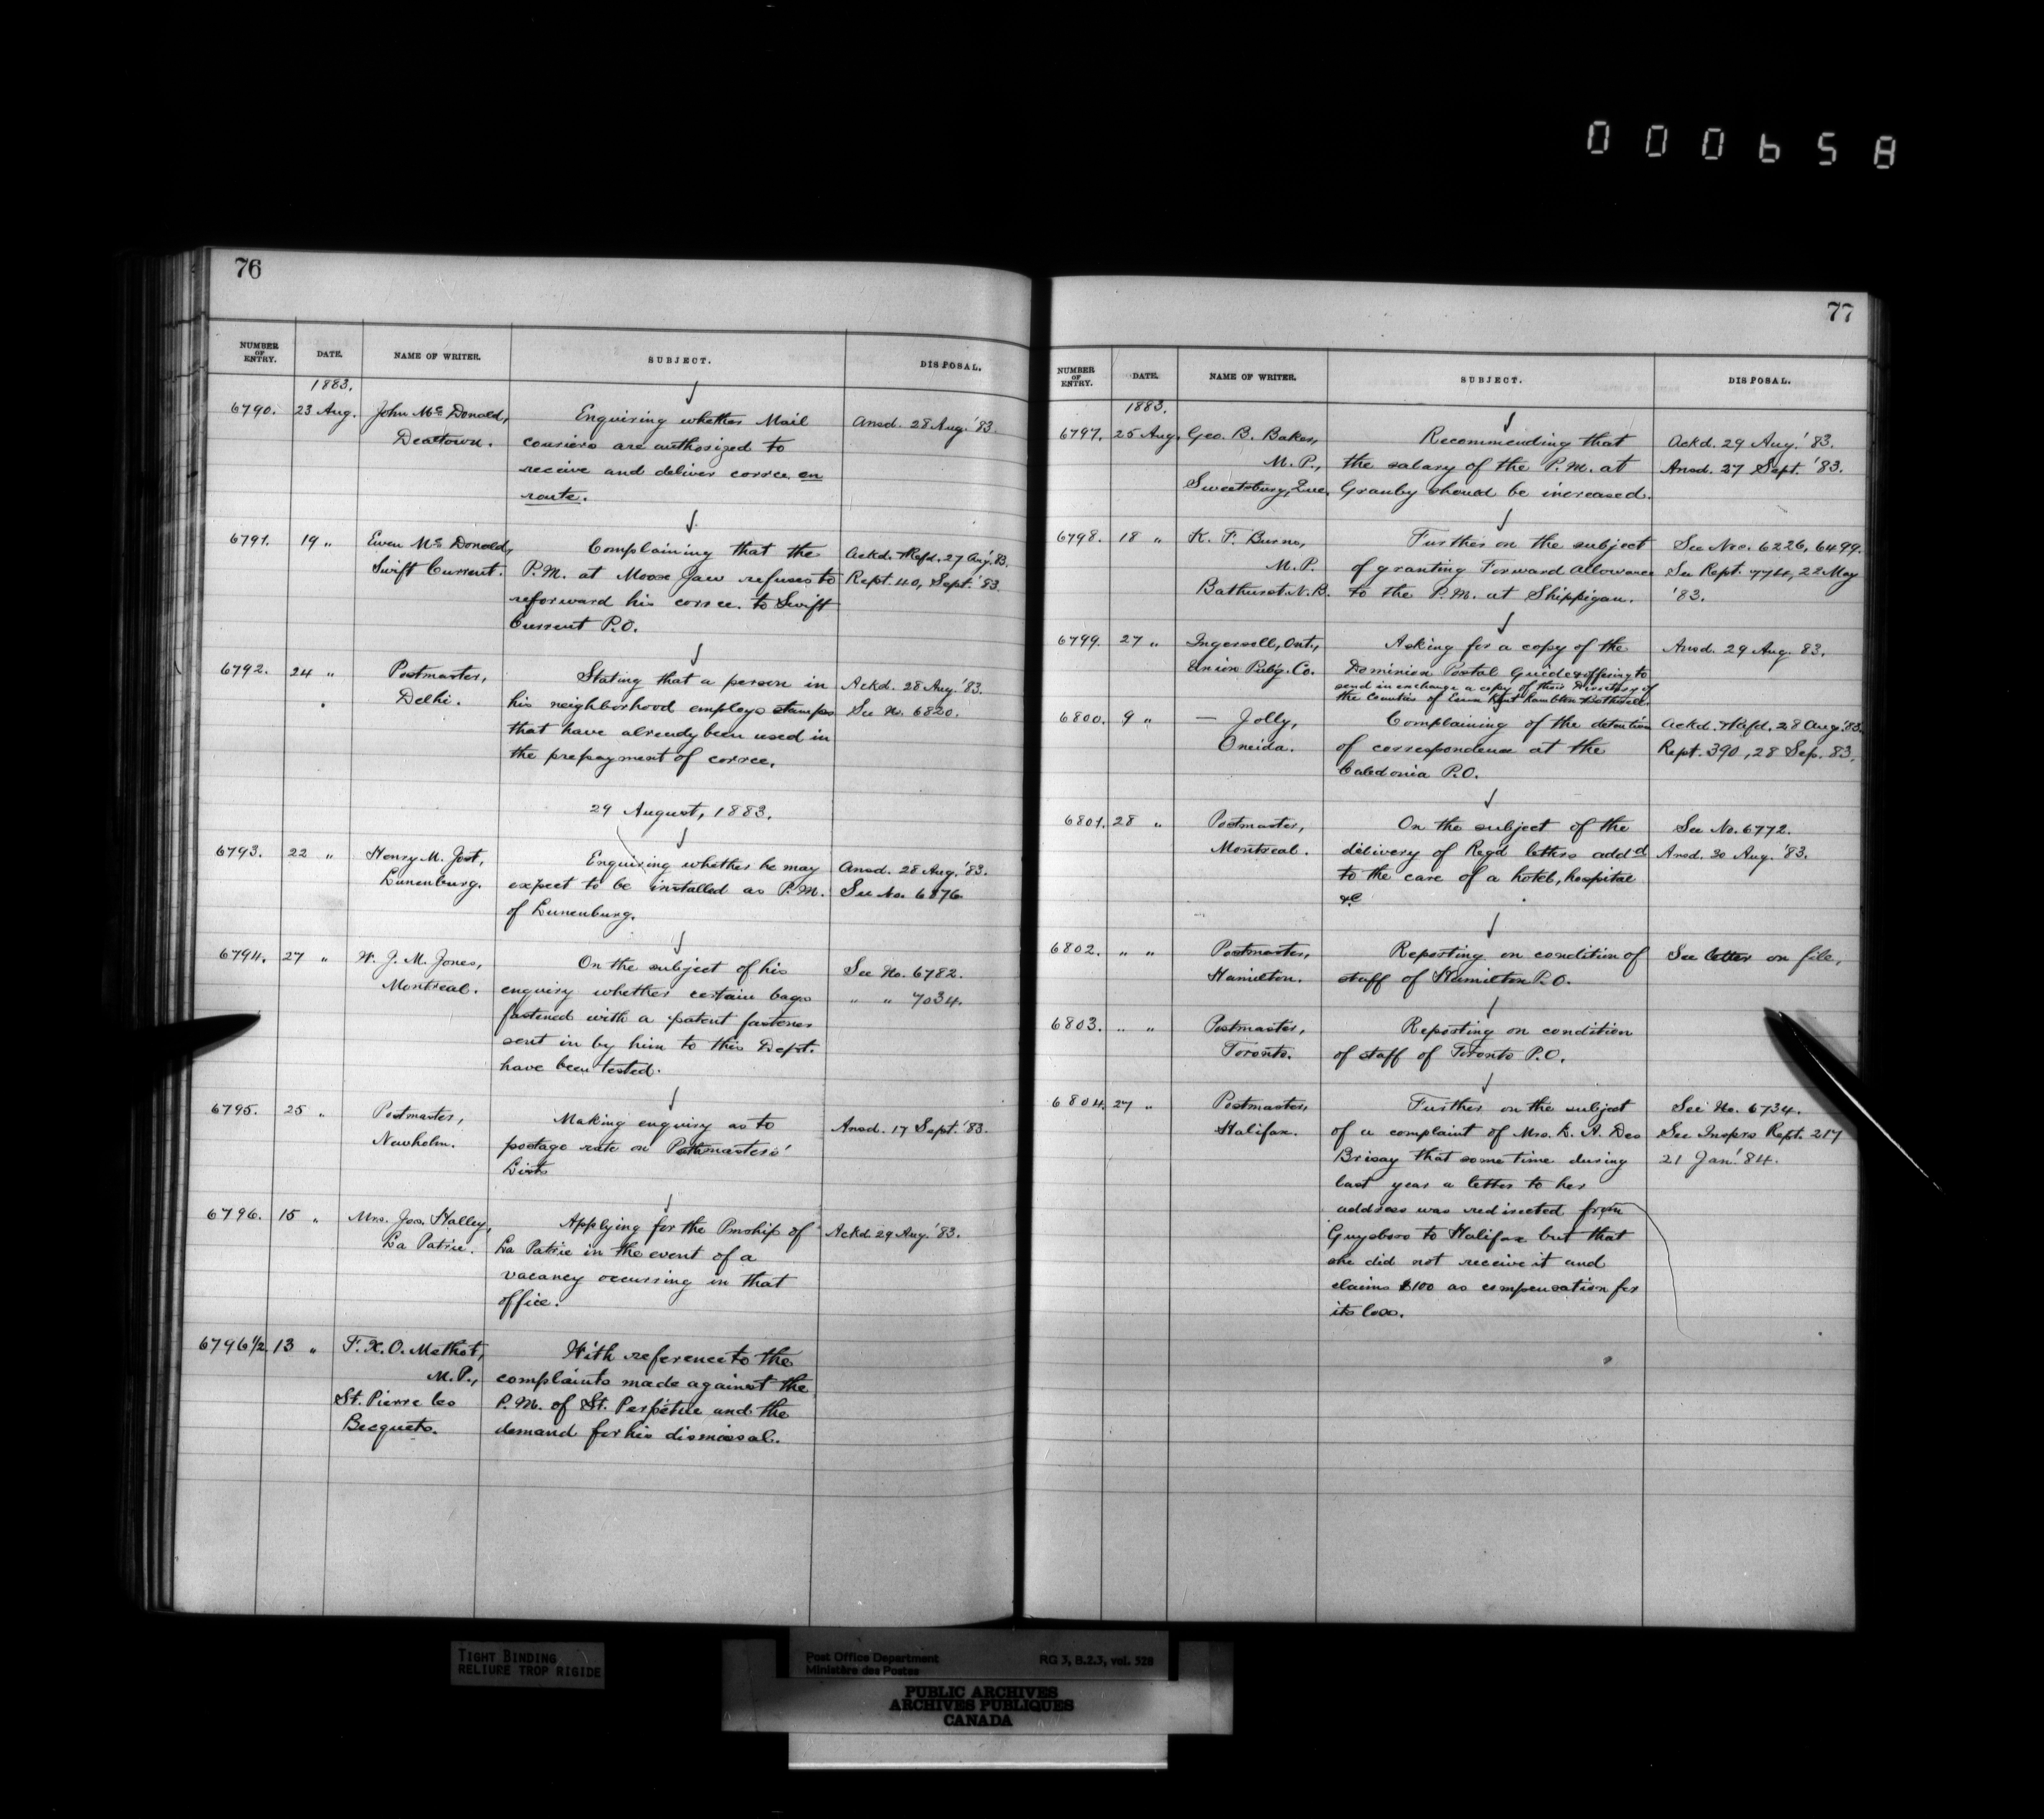 000658
76
NUMBER OF ENTRY. DATE. NAME OF WRITER. SUBJECT. DISPOSAL.
1883.
6790. 23 Aug. John Mc Donald, Enquiring whether Mail Ansd. 28 Aug. '83.
Dealtown. couriers are authorized to
receive and deliver corrce. en
route.
6791. 19 " Ewen Mc Donald, Complaining that the Ackd. & Refd. 27 Aug. '83.
Swift Current. P.M. at Moose Jaw refuses to Rept. 40, Sept. '83.
reforward his corrce. to Swift
Current P.O.
6792. 24 " Postmaster, Stating that a person in Ackd. 28 Aug. '83.
Delhi. his neighborhood employs stamps See No. 6820.
that have already been used in
the prepayment of corrce.
29 August, 1883.
6793. 22 " Henry M. Jost, Enquiring whether he may Ansd. 28 Aug. '83.
Lunenburg. expect to be installed as P.M. See No. 6876.
of Lunenburg.
6794. 27 " W. J. M. Jones, On the subject of his See No. 6782.
Montreal. enquiry whether certain bags " " 7034.
fastened with a patent fastener
sent in by him to this Dept.
have been tested.
6795. 25 " Postmaster, Making enquiry as to Ansd. 17 Sept. '83.
Newholm. postage rate on Postmasters'
Lists
6796. 15 " Mrs. Jos. Halley, Applying for the Pmship of Ackd. 29 Aug. '83.
La Patrie. La Patrie in the event of a
vacancy occurring in that
office.
6796 1/2 13 " F. X. O. Methot, With reference to the
M.P., complaints made against the
St. Pierre les P.M. of St. Perpétue and the
Becquets. demand for his dismissal.
77
NUMBER OF ENTRY. DATE. NAME OF WRITER. SUBJECT. DISPOSAL.
1883.
6797. 25 Aug. Geo. B. Baker, Recommending that Ackd. 29 Aug. '83.
M.P., the salary of the P.M. at Ansd. 27 Sept. '83.
Sweetsburg, Que. Granby should be increased.
6798. 18 " K. F. Burns, Further on the subject See Nos. 6226, 6499.
M.P. of granting Forward Allowance See Rept. 774, 22 May
Bathurst N.B. to the P.M. at Shippigan. '83.
6799. 27 " Ingersoll, Ont., Asking for a copy of the Ansd. 29 Aug. 83.
Union Pub'g. Co. Dominion Postal Guide & offering to
send in exchange a copy of their Directory of
the Counties of Essex Kent Lambton & Bothwell.
6800. 9 " — Jolly, Complaining of the detention Ackd. & Refd. 28 Aug. '83.
Oneida. of correspondence at the Rept. 390, 28 Sep. 83.
Caledonia P.O.
6801. 28 " Postmaster, On the subject of the See No. 6772.
Montreal. delivery of Regd letters addd Ansd. 30 Aug. '83.
to the care of a hotel, hospital
&c
6802. " " Postmaster, Reporting on condition of See letter on file.
Hamilton. staff of Hamilton P.O.
6803. " " Postmaster, Reporting on condition
Toronto. of staff of Toronto P.O.
6804. 27 " Postmaster, Further on the subject See No. 6734.
Halifax. of a complaint of Mrs. L. A. Des See Insprs Rept. 217
Brisay that some time during 21 Jan'84.
last year a letter to her
address was redirected from
Guysboro to Halifax but that
she did not receive it and
claims $100 as compensation for
its loss.
TIGHT BINDING
RELIURE TROP RIGIDE
Post Office Department RG 3, B.2.3, vol. 528
Ministère des Postes
PUBLIC ARCHIVES
ARCHIVES PUBLIQUES
CANADA